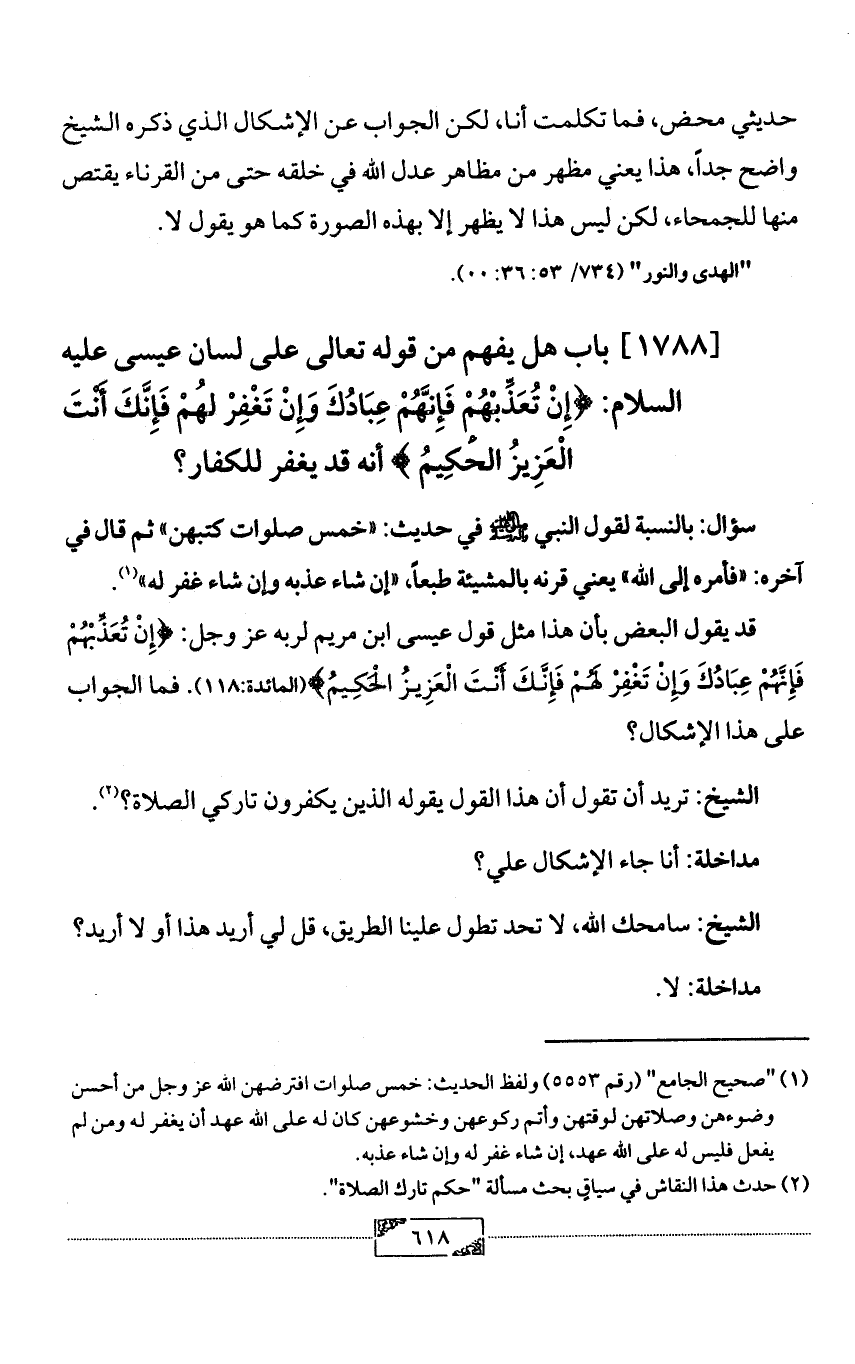 حديثي محض، فما تكلمت أنا، لكن الجواب عن الإشكال الذي ذكره الشيخ
واضح جداً، هذا يعني مظهر من مظاهر عدل الله في خلقه حتى من القرناء يقتص
منها للجمحاء، لكن ليس هذا لا يظهر إلا بهذه الصورة كما هو يقول لا.
"الهدى والنور" (٧٣٤/ ٥٣: ٣٦: ٠٠).
[١٧٨٨] باب هل يفهم من قوله تعالى على لسان عيسى عليه
السلام: ﴿إِنْ تُعَذِّبْهُمْ فَإِنَّهُمْ عِبَادُكَ وَإِنْ تَغْفِرْ لهُمْ فَإِنَّكَ أَنْتَ
الْعَزِيزُ الحُكِيمُ﴾ أنه قد يغفر للكفار؟
سؤال: بالنسبة لقول النبي ﷺ في حديث: «خمس صلوات كتبهن» ثم قال في
آخره: «فأمره إلى الله» يعني قرنه بالمشيئة طبعاً، «إن شاء عذبه وإن شاء غفر له»(١).
قد يقول البعض بأن هذا مثل قول عيسى ابن مريم لربه عز وجل: ﴿إِنْ تُعَذِّبْهُمْ
فَإِنَّهُمْ عِبَادُكَ وَإِنْ تَغْفِرْ لَهُمْ فَإِنَّكَ أَنْتَ الْعَزِيزُ الحَكِيمُ﴾(المائدة:١١٨). فما الجواب
على هذا الإشكال؟
الشيخ: تريد أن تقول أن هذا القول يقوله الذين يكفرون تاركي الصلاة؟(٢).
مداخلة: أنا جاء الإشكال علي؟
الشيخ: سامحك الله، لا تحد تطول علينا الطريق، قل لي أريد هذا أو لا أريد؟
مداخلة: لا.
(١) "صحيح الجامع" (رقم ٥٥٥٣) ولفظ الحديث: خمس صلوات افترضهن الله عز وجل من أحسن
وضوءهن وصلاتهن لوقتهن وأتم ركوعهن وخشوعهن كان له على الله عهد أن يغفر له ومن لم
يفعل فليس له على الله عهد، إن شاء غفر له وإن شاء عذبه.
(٢) حدث هذا النقاش في سياق بحث مسألة "حكم تارك الصلاة".
٦١٨